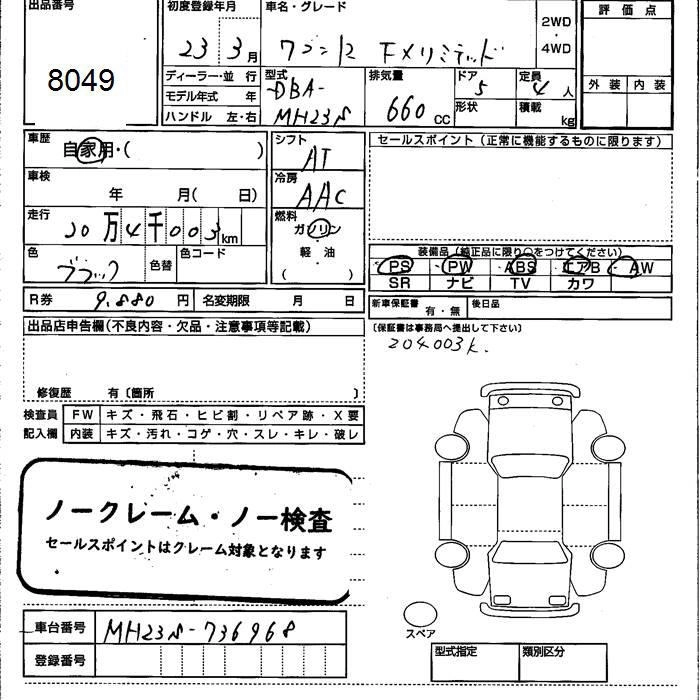 出品番号
8049
初度登録年月
23 3月
車名・グレード
ワゴンR FXリミテッド
2WD
・
4WD
評価点
外装 内装
ディーラー・並 行
モデル年式 年
ハンドル 左・右
型式
DBA-
MH23S
排気量
660 CC
ドア
5
形状
定員
4 人
積載
kg
車歴
自家用・( )
車検
年 月( 日)
走行
20万4千003km
色
ブラック
色替
色コード
シフト
AT
冷房
AAC
燃料
ガソリン
軽 油
( )
セールスポイント(正常に機能するものに限ります)
装備品(純正品に限り○をつけてください)
PS ・PW ・ABS ・エアB ・AW
SR ナビ TV カワ
R券 9.880 円
名変期限 月 日
新車保証書
有・無
後日品
(保証書は事務局へ提出して下さい)
204003K.
出品店申告欄(不良内容・欠品・注意事項等記載)
修復歴 有〔箇所 〕
検査員
記入欄
FW キズ・飛石・ヒビ割・リペア跡・X要
内装 キズ・汚れ・コゲ・穴・スレ・キレ・破レ
ノークレーム・ノー検査
セールスポイントはクレーム対象となります
車台番号 MH23S-736968
登録番号
スペア
型式指定 類別区分